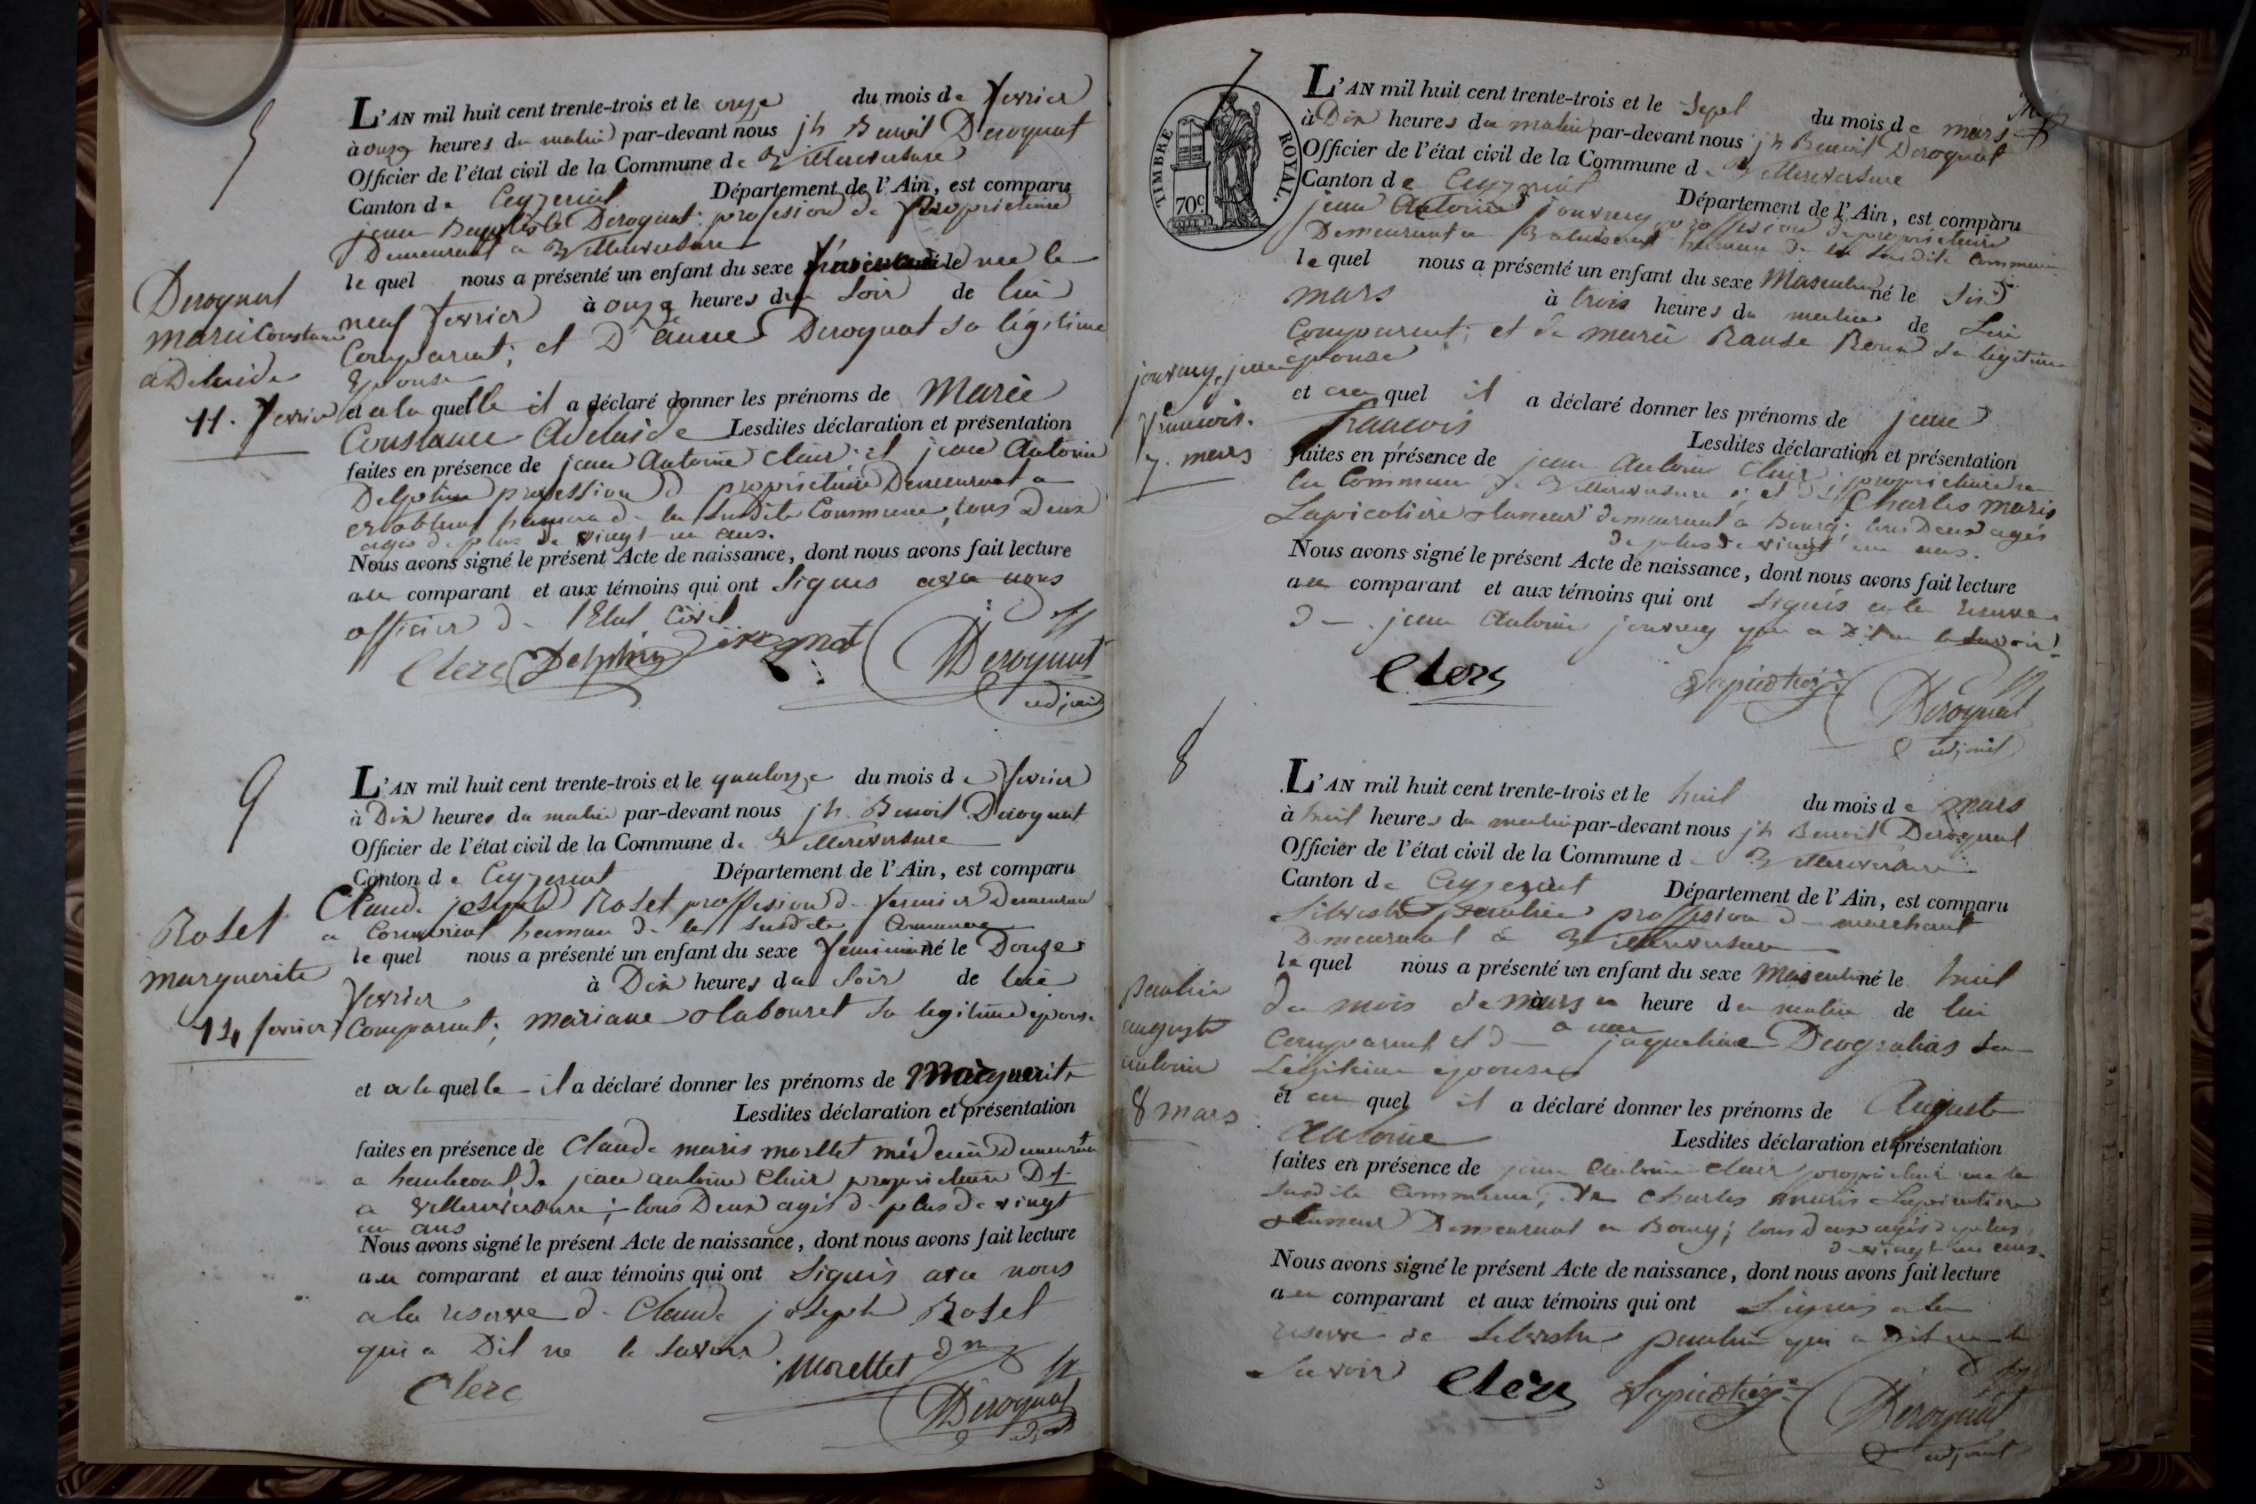 5
L'AN mil huit cent trente-trois et le onze du mois de fevrier
à onze heures du matin par-devant nous jh Benoit Deroguat
Officier de l'état civil de la Commune de Villereversure
Canton de Ceyzeriat Département de l'Ain, est comparu
jean Baptiste Deroguat profession de proprietaire
Demeurant a Villereversure
le quel nous a présenté un enfant du sexe né le
neuf fevrier à onze heures du soir de lui
Comparant; et D'anne Deroguat sa légitime
Epouse
et a la quelle il a déclaré donner les prénoms de Marie
Constance Adelaide Lesdites déclaration et présentation
faites en présence de jean Antoine Clair et jean Antoine
profession d proprietaire Demeurant a
hameau de la susdite Commune, tous deux
agés de plus de vingt un ans.
Nous avons signé le présent Acte de naissance, dont nous avons fait lecture
au comparant et aux témoins qui ont signés avec nous
officier de l'Etat Civil
Clerc Delphin Deroguat Deroguat
adjoint
Deroguat
marie Constance
adelaide
11. fevrier
L'AN mil huit cent trente-trois et le quatorze du mois de fevrier
à Dix heures du matin par-devant nous jh. Benoit Deroguat
Officier de l'état civil de la Commune de Villereversure
Canton de Ceyzeriat Département de l'Ain, est comparu
Claude joseph Roset proffession de fermier Demeurant
a hameau de la susdite Commune
le quel nous a présenté un enfant du sexe feminin né le Douze
fevrier à Dix heures du soir de lui
Comparant; mariane Labouret sa legitime epouse
et a la quelle il a déclaré donner les prénoms de Marguerite
Lesdites déclaration et présentation
faites en présence de Claude maris morllet médecin demeurant
a hautecourt, De jean antoine Clair proprietaire Dt
a Villereversure; tous Deux agés de plus de vingt
un ans
Nous avons signé le présent Acte de naissance, dont nous avons fait lecture
au comparant et aux témoins qui ont signés avec nous
a la reserve de Claude joseph Roset
qui a Dit ne le savoir
Clerc morellet Deroguat
Roset
marguerite
14 fevrier
7
TIMBRE ROYAL.
70c
L'AN mil huit cent trente-trois et le sept du mois de mars
à Dix heures du matin par-devant nous jh Benoit Deroguat
Officier de l'état civil de la Commune de Villereversure
Canton de Ceyzeriat Département de l'Ain, est comparu
jean Antoine jouvrey proffession de proprietaire
Demeurant a hameau de la susdite Commune
le quel nous a présenté un enfant du sexe Masculin né le six
mars à trois heures du matin de lui
Comparant; et de marie Roux sa légitime
epouse
et au quel il a déclaré donner les prénoms de jean
francois Lesdites déclaration et présentation
faites en présence de jean Antoine Clair, proprietaire
la Commune de Villereversure; et Charles maris
Lapicotiere demeurant a Bourg; tous Deux agés
de plus de vingt un ans.
Nous avons signé le présent Acte de naissance, dont nous avons fait lecture
au comparant et aux témoins qui ont signés a la reserve
de jean Antoine jouvrey qui a Dit ne le savoir
Clerc Deroguat
adjoint
jouvrey, jean
francois.
7. mars
8
L'AN mil huit cent trente-trois et le huit du mois de mars
à huit heures du matin par-devant nous jh Benoit Deroguat
Officier de l'état civil de la Commune de Villereversure
Canton de Ceyzeriat Département de l'Ain, est comparu
Silvestre paulin proffession de marchant
Demeurant a Villereversure
le quel nous a présenté un enfant du sexe Masculin né le huit
du mois de mars à heure du matin de lui
Comparant et de jaqueline Deogratias sa
Légitime epouse
et au quel il a déclaré donner les prénoms de Auguste
Antoine Lesdites déclaration et présentation
faites en présence de jean Antoine Clair proprietaire de la
susdite Commune, De Charles maris Lapicotiere
Demeurant a Bourg; tous deux agés de plus
de vingt un ans.
Nous avons signé le présent Acte de naissance, dont nous avons fait lecture
au comparant et aux témoins qui ont signés a la
reserve de Silvestre paulin qui a dit ne le
savoir
Clerc Deroguat
adjoint
paulin
auguste
antoine
8 mars